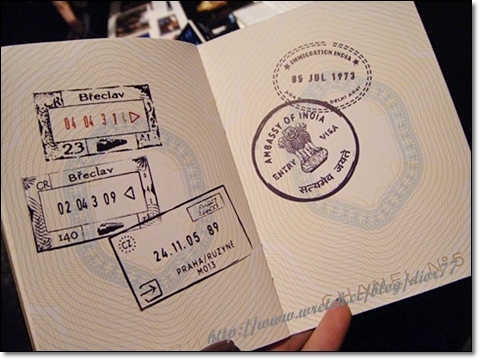 CR
Břeclav
04 04 3 1
23
AT
CR
Břeclav
02 04 3 09
140
CZ
24.11.05 89
PRAHA/RUZYNĚ
M013
IMMIGRATION INDIA
05 JUL 1973
DELHI
AMBASSY OF INDIA
ENTRY VISA
सत्यमेव जयते
CHANEL Nº5
http://www.wretch.cc/blog/dior77